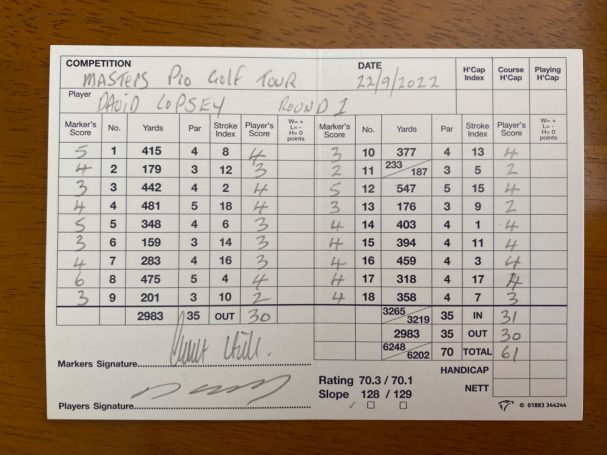 COMPETITION DATE H'Cap Index Course H'Cap Playing H'Cap
MASTERS PRO GOLF TOUR 22/9/2022
Player DAVID COPSEY ROUND 1
Marker's Score No. Yards Par Stroke Index Player's Score W= + L= - H= 0 points Marker's Score No. Yards Par Stroke Index Player's Score W= + L= - H= 0 points
5 1 415 4 8 4 3 10 377 4 13 4
4 2 179 3 12 3 2 11 233/187 3 5 2
3 3 442 4 2 4 5 12 547 5 15 4
4 4 481 5 18 4 3 13 176 3 9 2
5 5 348 4 6 3 4 14 403 4 1 4
3 6 159 3 14 3 4 15 394 4 11 4
4 7 283 4 16 3 4 16 459 4 3 4
6 8 475 5 4 4 4 17 318 4 17 4
3 9 201 3 10 2 4 18 358 4 7 3
2983 35 OUT 30 3265/3219 35 IN 31
2983 35 OUT 30
6248/6202 70 TOTAL 61
Markers Signature HANDICAP
Rating 70.3 / 70.1 NETT
Slope 128 / 129
Players Signature © 01883 344244